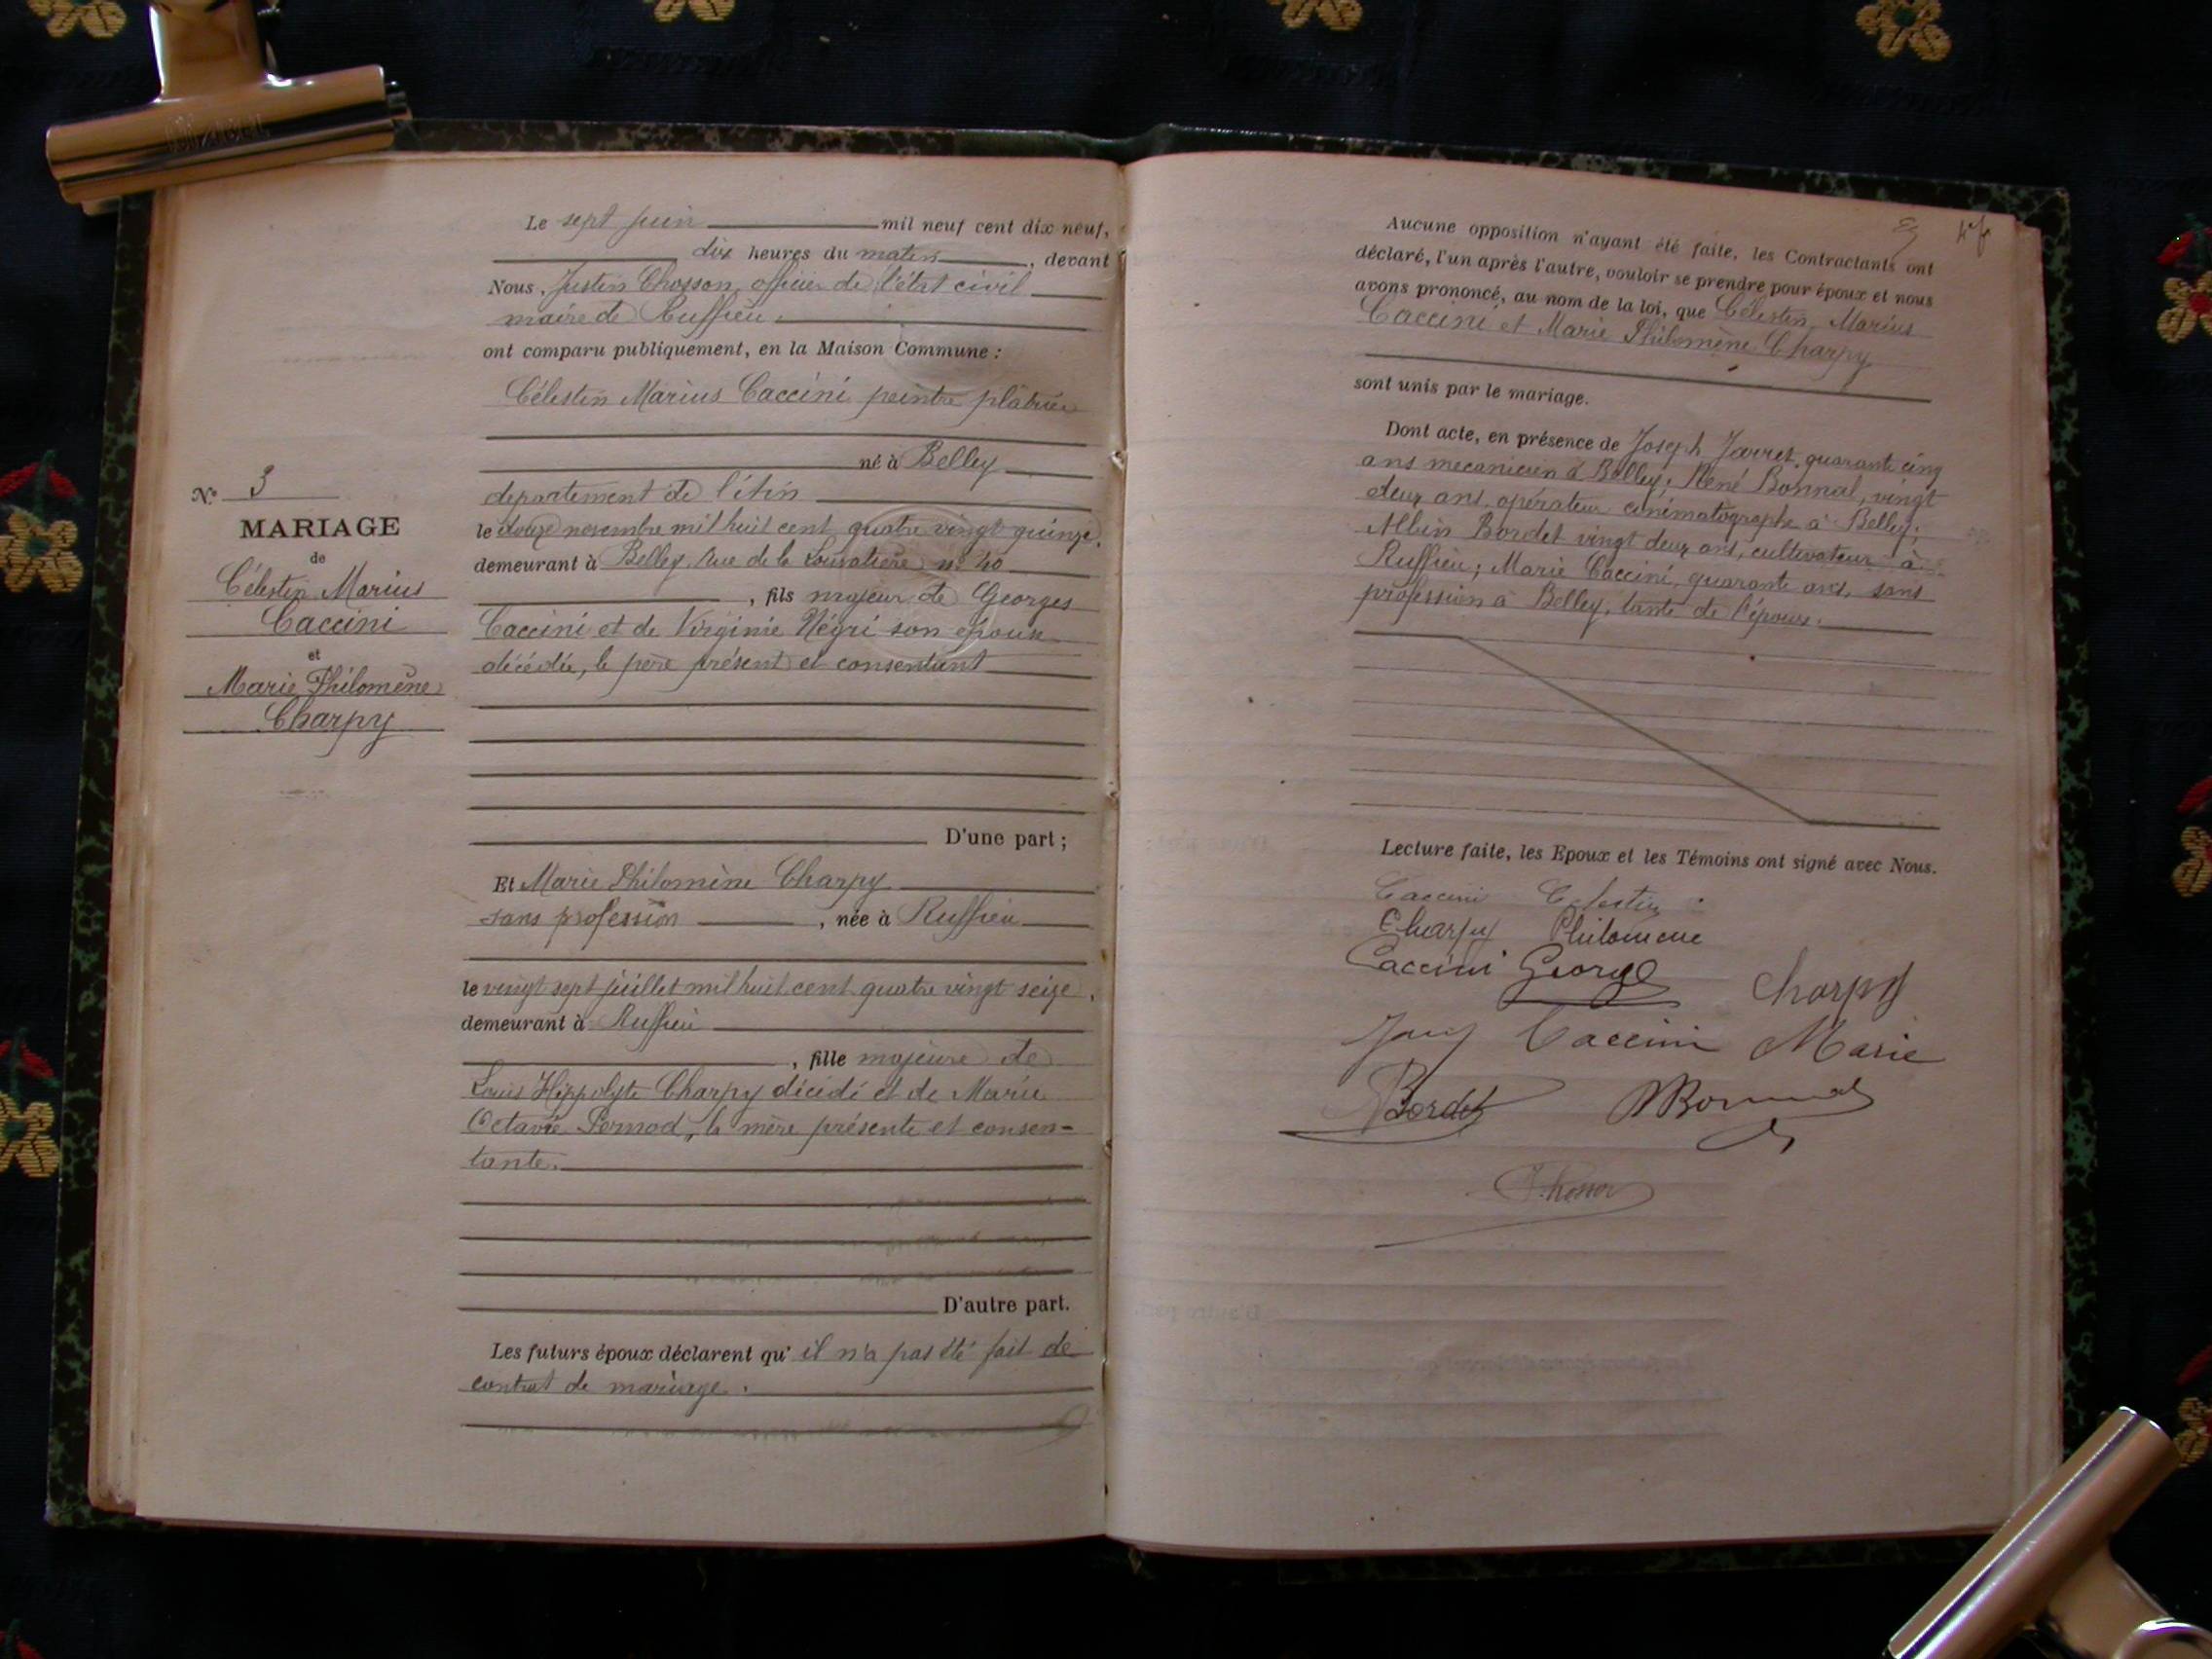 Le sept juin mil neuf cent dix neuf,
dix heures du matin, devant
Nous, Justin Chosson, officier de l'état civil
maire de Ruffieu.
ont comparu publiquement, en la Maison Commune :
Célestin Marius Caccini peintre plâtrier
né à Belley
departement de l'Ain
le douze novembre mil huit cent quatre vingt quinze,
demeurant à Belley, rue de la nº 40
, fils majeur de Georges
Caccini et de Virginie Négri son epouse
décédée, le père présent et consentant
D'une part ;
Nº 3
MARIAGE
de
Célestin Marius
Caccini
et
Marie Philomène
Charpy
Et Marie Philomène Charpy
sans profession, née à Ruffieu
le vingt sept juillet mil huit cent quatre vingt seize,
demeurant à Ruffieu
, fille majeure de
Louis Hippolyte Charpy décédé et de Marie
Octavie Pernod, la mère présente et consen-
tante.
D'autre part.
Les futurs époux déclarent qu' il n'a pas été fait de
contrat de mariage.
Aucune opposition n'ayant été faite, les Contractants ont
déclaré, l'un après l'autre, vouloir se prendre pour époux et nous
avons prononcé, au nom de la loi, que Célestin Marius
Caccini et Marie Philomène Charpy
sont unis par le mariage.
Dont acte, en présence de Joseph Jarret, quarante cinq
ans mecanicien à Belley; René Bonnal, vingt
deux ans, opérateur cinématographe à Belley;
Albin Bordet vingt deux ans, cultivateur à
Ruffieu; Marie Caccini, quarante ans, sans
profession à Belley, tante de l'époux.
Lecture faite, les Epoux et les Témoins ont signé avec Nous.
Caccini Celestin
Charpy Philomene
Caccini George Charpy
Caccini Marie
Bordet Bonnal
Chosson